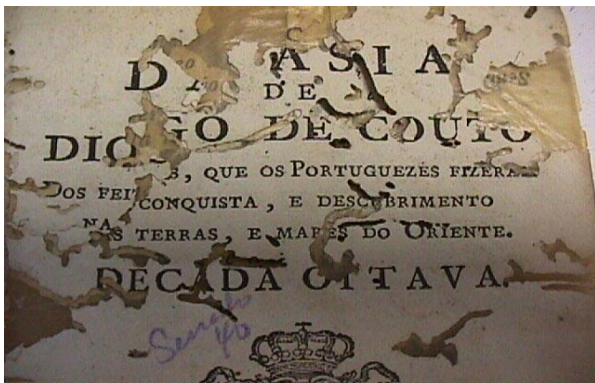 DA ASIA
DE
DIOGO DE COUTO
DOS FEITOS, QUE OS PORTUGUEZES FIZERAM
NA CONQUISTA, E DESCUBRIMENTO
DAS TERRAS, E MARES DO ORIENTE.
DECADA OITAVA.